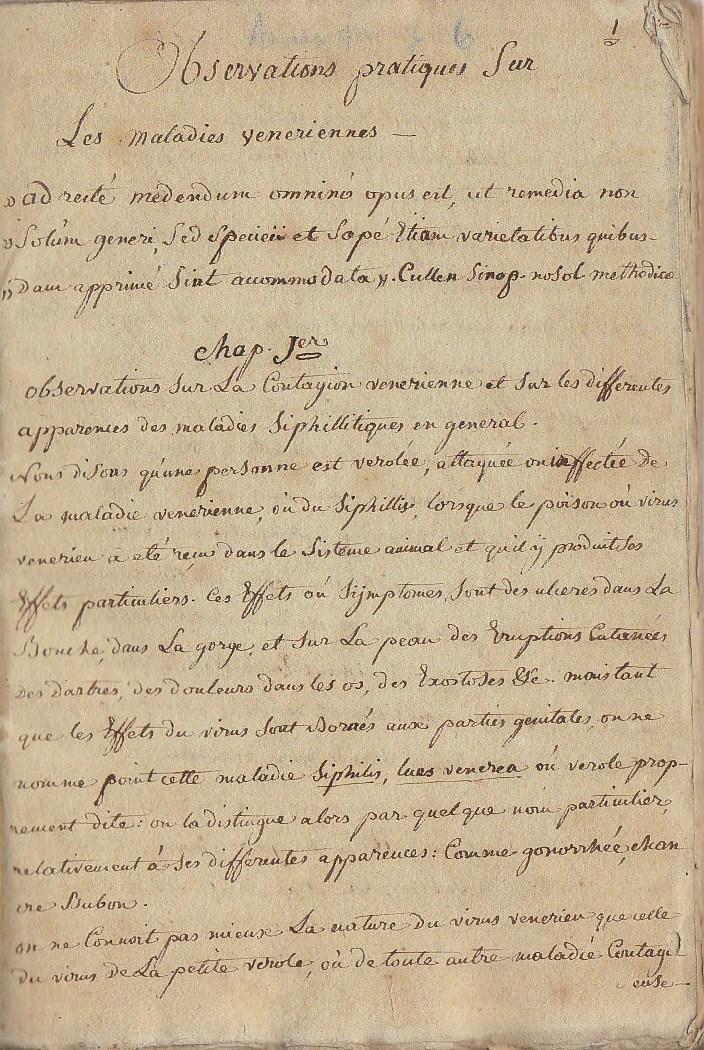 1
Observations pratiques Sur
Les maladies veneriennes —
» ad recté medendum omninó opus est, ut remedia non
» Solúm generi, Sed speciei et Sœpé Etiam varietatibus quibus-
» dam apprimé Sint accommodata ». Cullen Sinop. nosol. methodicæ
chap. Ier
observations Sur La Contagion venerienne et Sur les differentes
apparences des maladies Siphillitiques en general.
Nous disons qu'une personne est verolée, attaquée ou inffectée de
La maladie venerienne, où du Siphillis, lorsque le poison où virus
venerien à eté reçu dans le Sisteme animal et qu'il ÿ produit Ses
Effets particuliers. Ces Effets où Sÿmptomes, Sont des ulceres dans La
Bouche, dans La gorge, et Sur La peau des Eruptions Cutanées
des dartres, des douleurs dans les os, des Exostoses &c. mais tant
que les Effets du virus Sont Bornés aux parties genitales, on ne
nomme point cette maladie Siphilis, lues venerea où verole prop-
rement dite: on la distingue alors par quelque nom particulier,
relativement á Ses differentes apparences: Comme gonorrhée, chan
cre Bubon.
on ne Connoit pas mieux La nature du virus venerien que celle
du virus de La petite verole, où de toute autre maladie Contagi
euse —